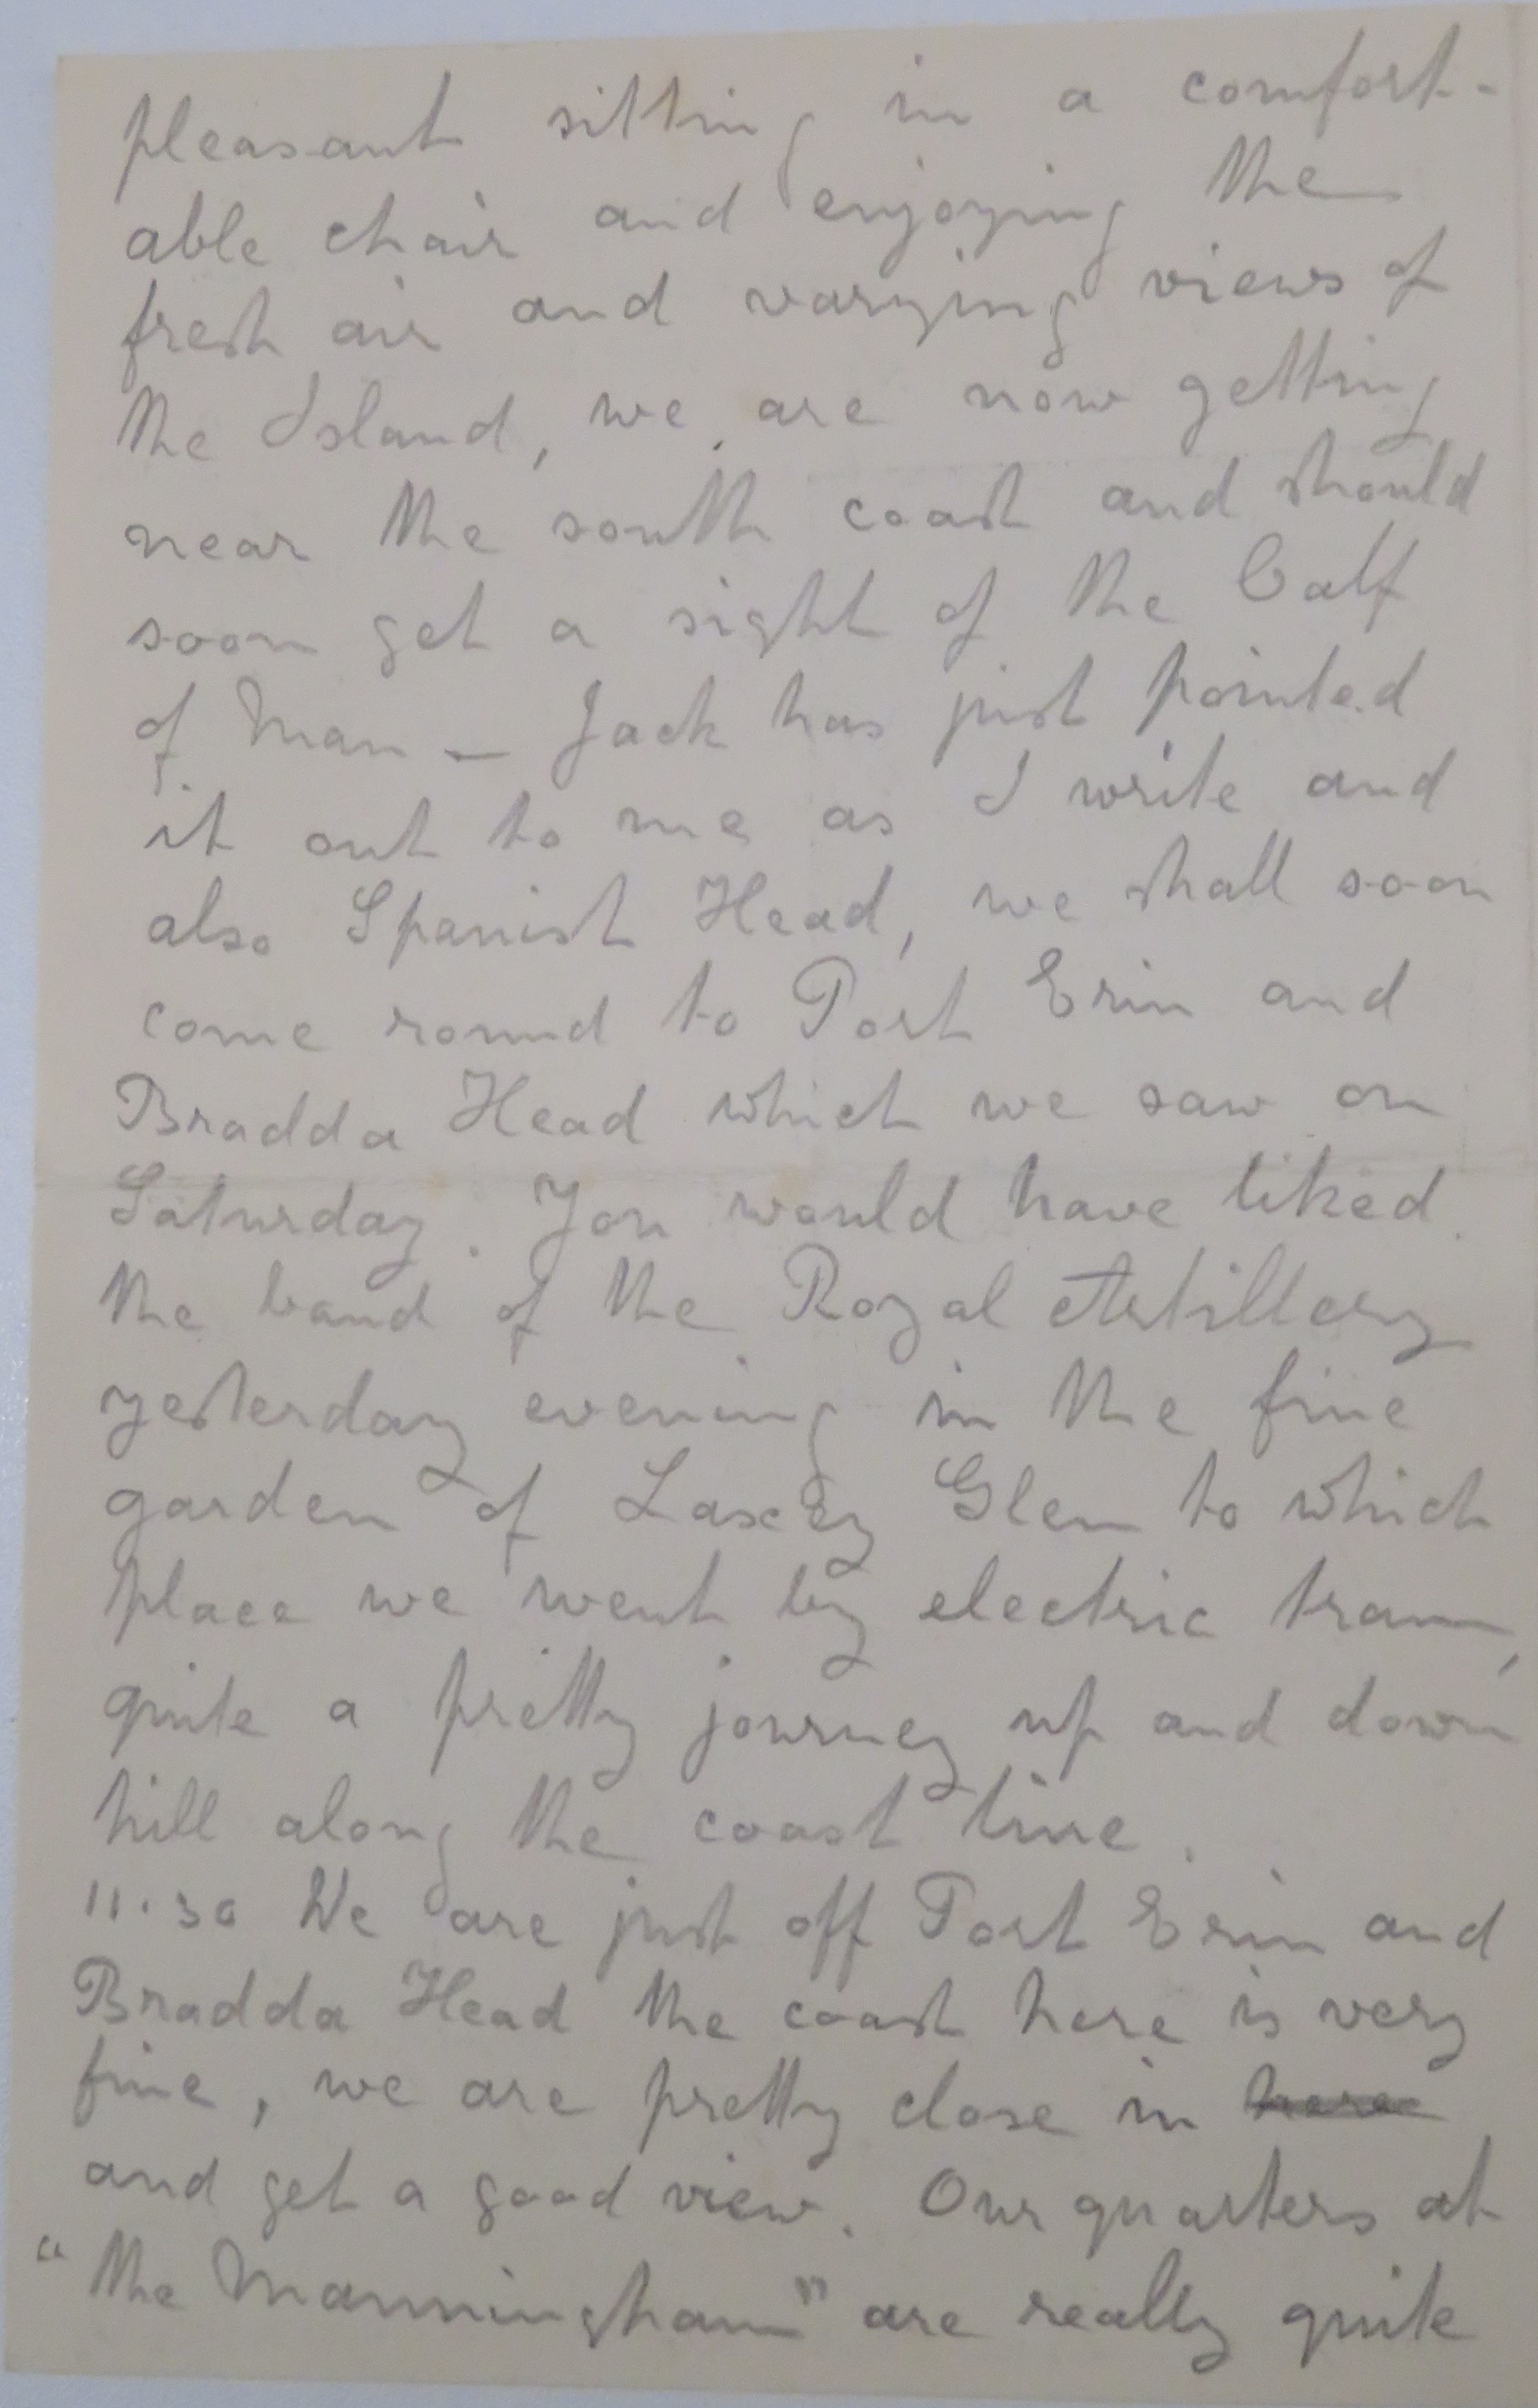 pleasant sitting in a comfort-
able chair and enjoying the
fresh air and varying views of
the Island, we are now getting
near the south coast and should
soon get a sight of the Calf
of Man — Jack has just pointed
it out to me as I write and
also Spanish Head, we shall soon
come round to Port Erin and
Bradda Head which we saw on
Saturday. You would have liked
the band of the Royal Artillery
yesterday evening in the fine
garden of Laxey Glen to which
place we went by electric tram,
quite a pretty journey up and down
hill along the coast line.
11.30 We are just off Port Erin and
Bradda Head the coast here is very
fine, we are pretty close in here
and get a good view. Our quarters at
"the Manningham" are really quite